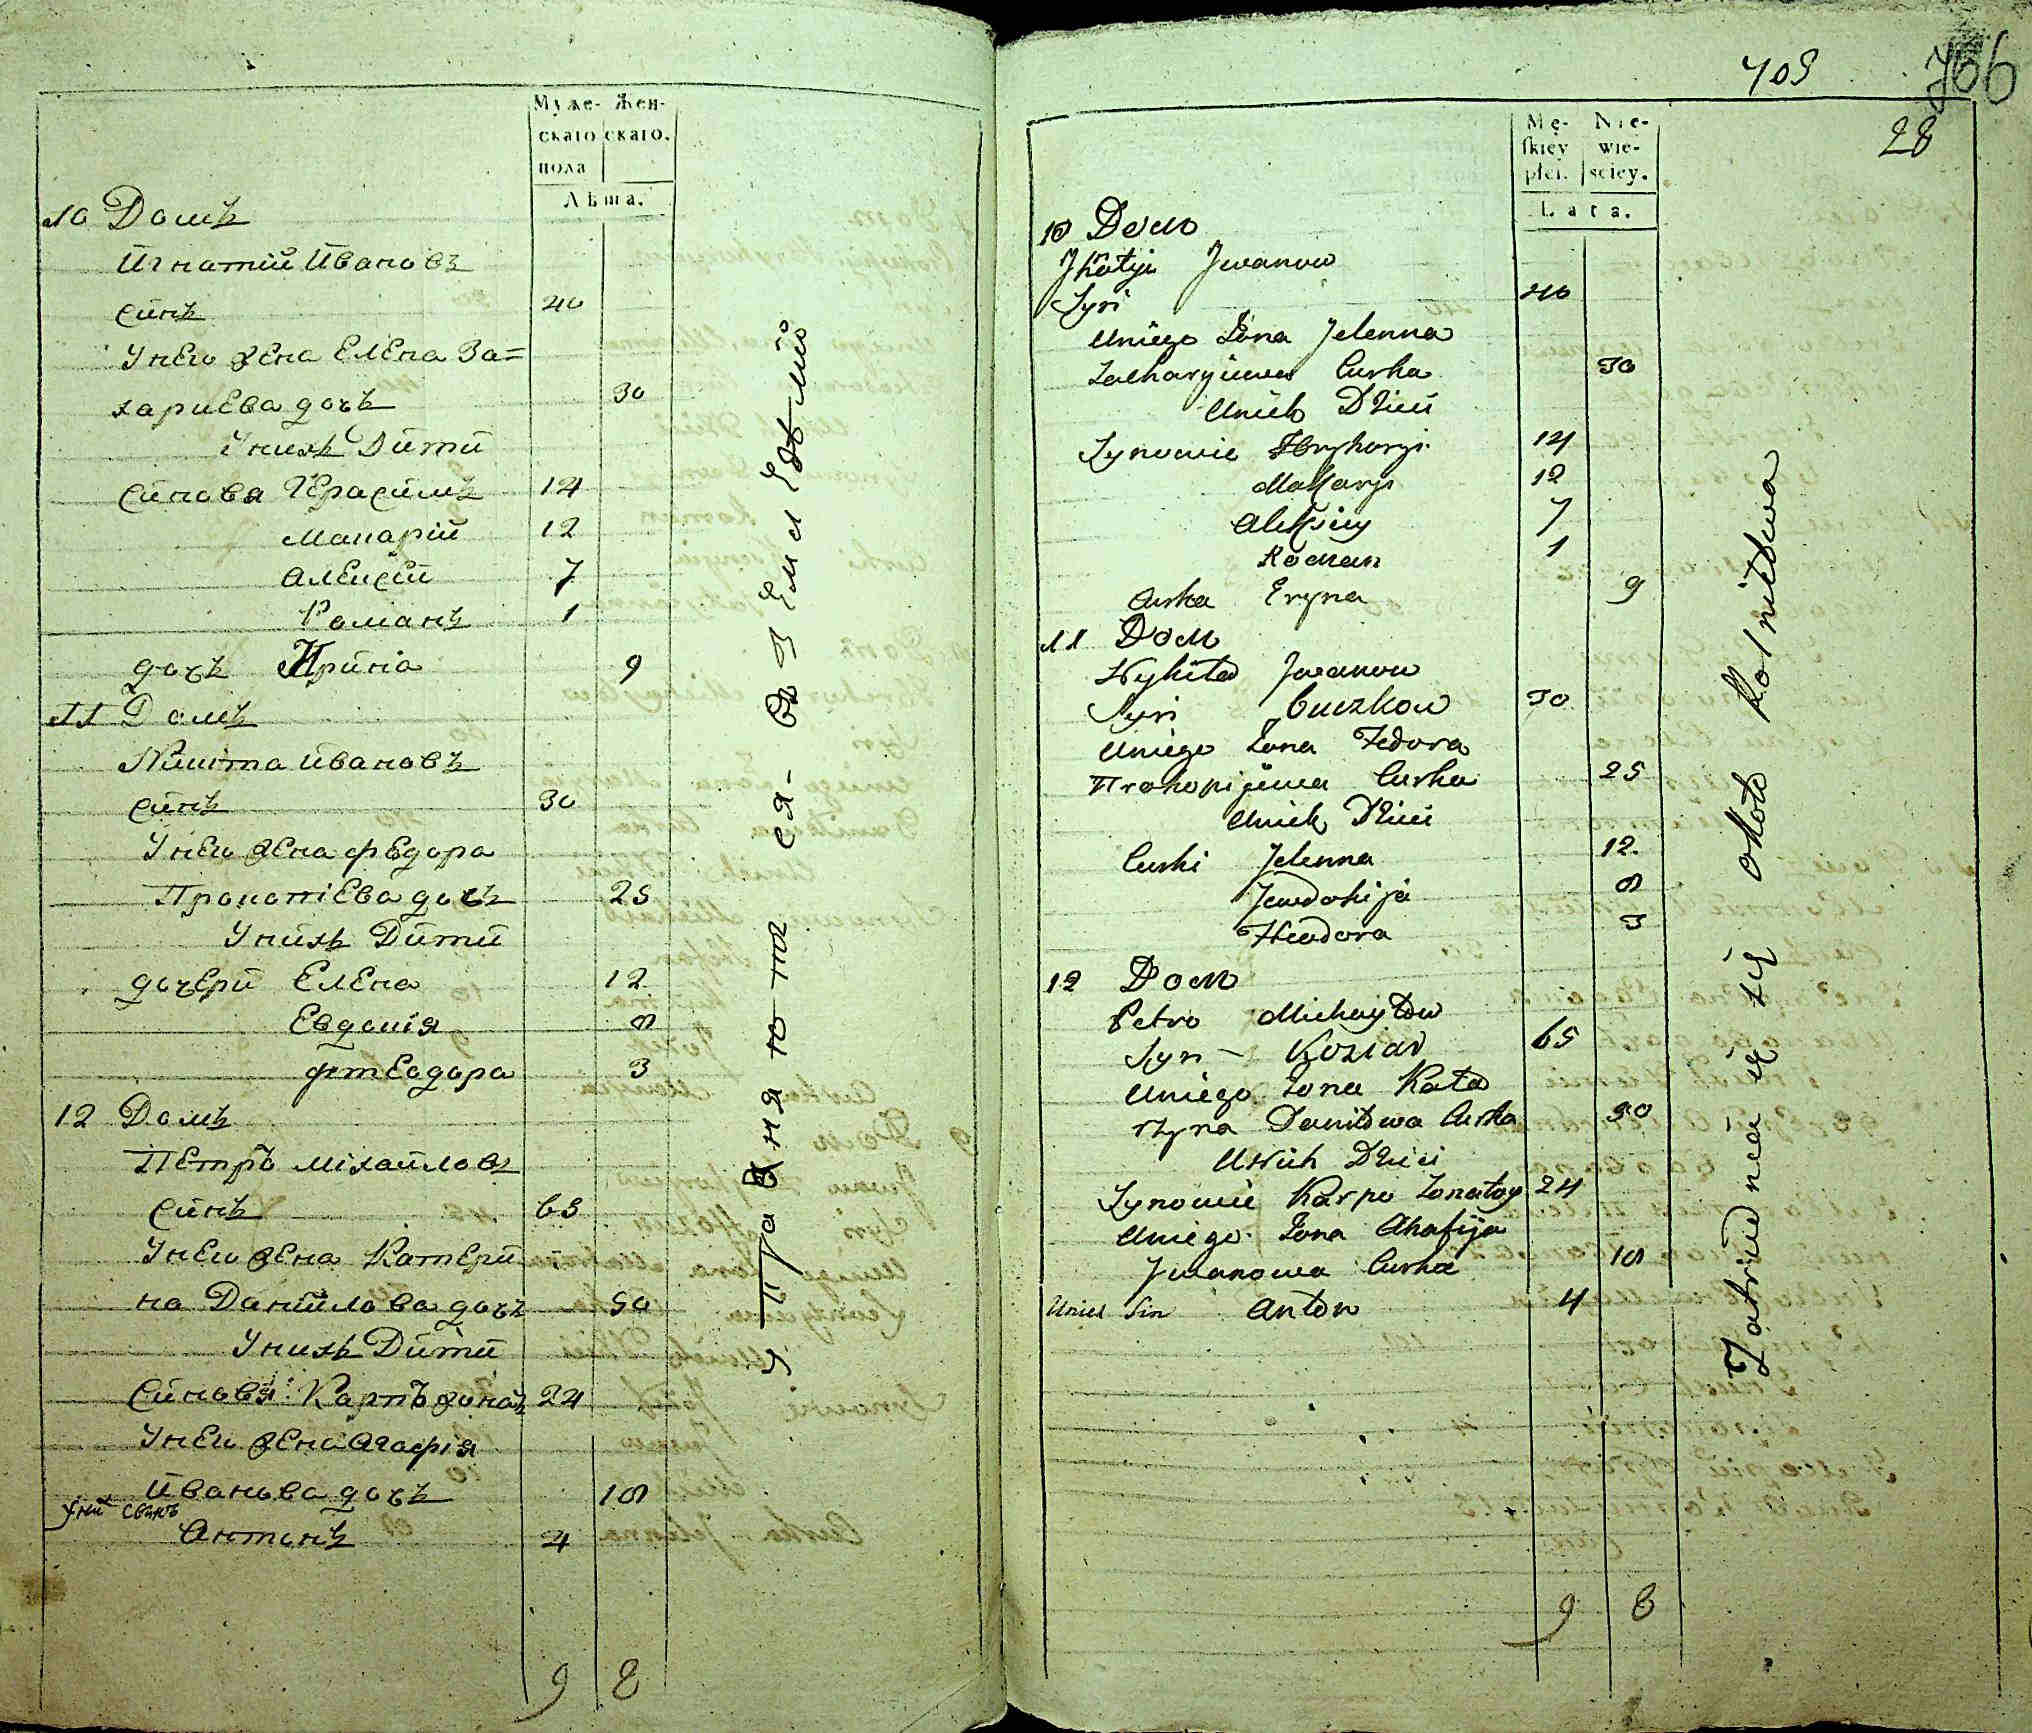 Муже- Жен-
скаго скаго.
пола
Лѣта.
10 Домъ
Игнатій Ивановъ
синъ 40
У нею жена Елена За=
харіева дочъ 30
У нихъ Дити
Синовя Герасимъ 14
Макарій 12
Алексій 7
Романъ 1
дочъ Ирина 9
11 Домъ
Никита Ивановъ
синъ 30
У нею жена Федора
Прокопіева дочъ 25
У нихъ Дити
дочери Елена 12
Евдокія 8
Феодора 3
12 Домъ
Петръ Михайловъ
Синъ 65
У нею жена Катери
на Данилова дочъ 50
У нихъ Дити
Синовя: Карпъ жонатъ 24
У нею жена Агафія
Иванова дочъ 18
У них синъ
Антонъ 4
9 8
упражняются въ земледѣліи
705 706
28
Mę- Nie-
skiey wie-
płci. sciey.
Lata.
10 Dom
Jhnatyi Jwanow
Syn 40
Uniego Żona Jelenna
Zacharyiewa Curka 30
Unich Dzieci
Synowie Hryhoryi 14
Makaryi 12
Alexiey 7
Roman 1
Curka Eryna 9
11 Dom
Nykita Jwanow
Syn Cuczkow 30
Uniego Żona Fedora
Prokopijewa Curka 25
Unich Dzieci
Curki Jelenna 12
Jewdokija 8
Fewdora 3
12 Dom
Petro Michayłow
Syn - Koziar 65
Uniego Żona Kata
rzyna Daniłowa Curka 50
Unich Dzieci
Synowie Karpo Żonatoy 24
Uniego Żona Ahafija
Jwanowa Curka 18
Unich Sin Anton 4
9 8
Zatrudniaią się około Rolnictwa